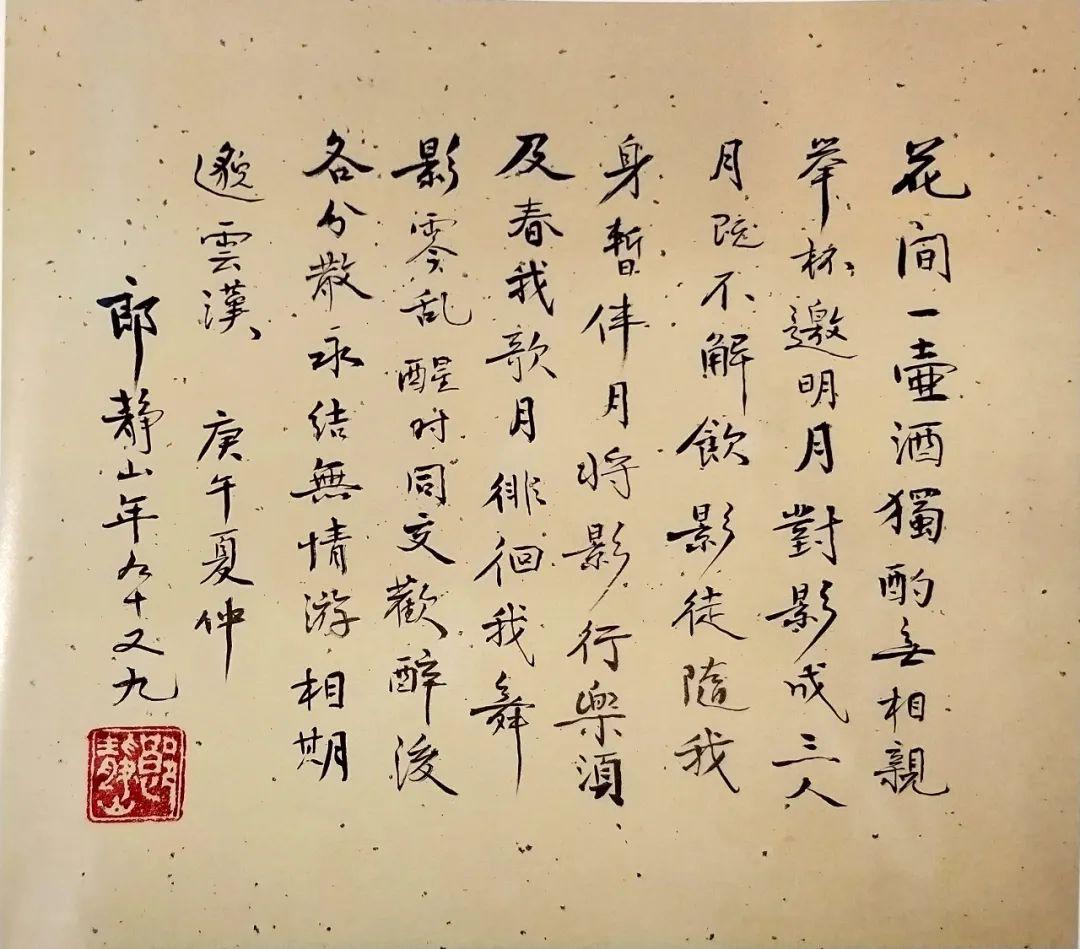 花间一壷酒獨酌無相親
举杯邀明月對影成三人
月既不解飲影徒隨我
身暫伴月将影行樂須
及春我歌月徘徊我舞
影零乱醒时同交歡醉後
各分散永结無情游相期
邈雲漢 庚午夏仲
郎静山年九十又九
郎静山